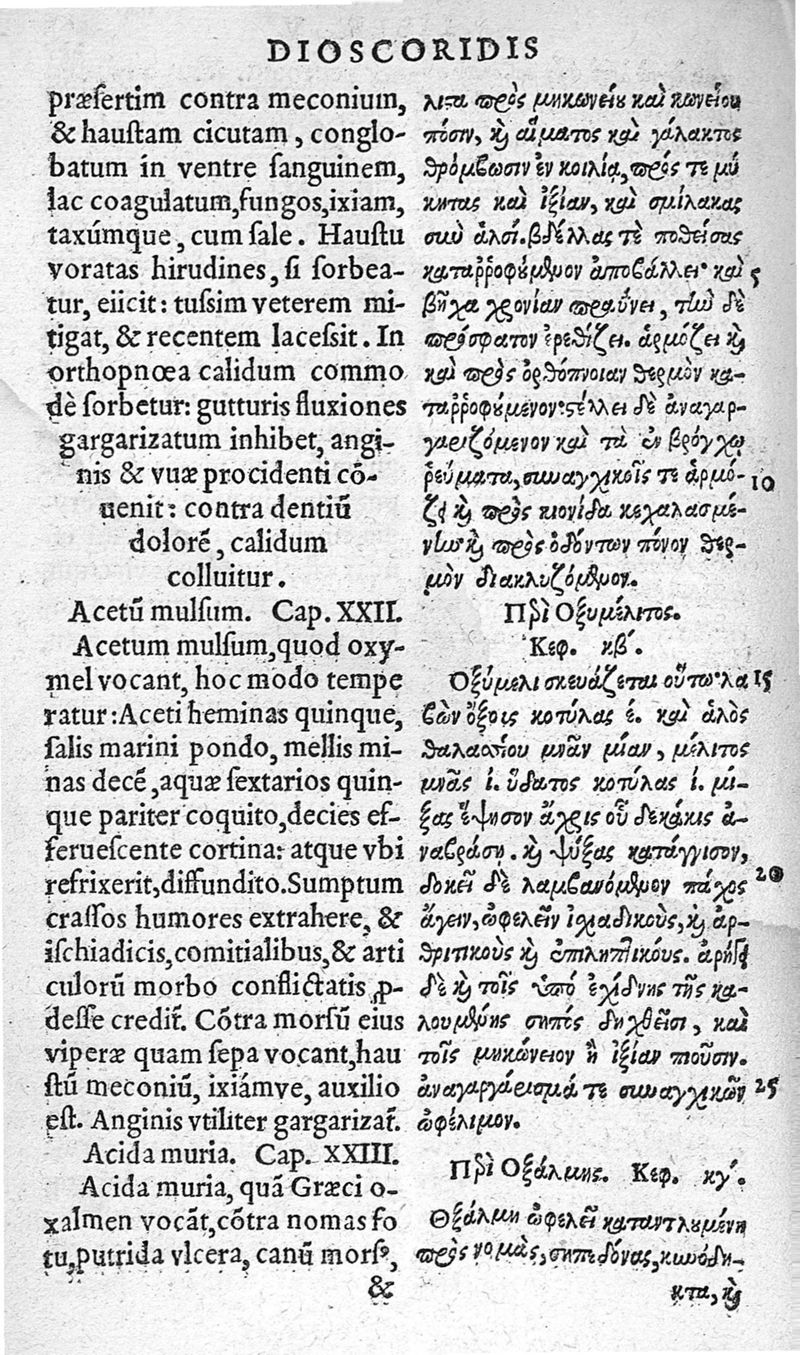 DIOSCORIDIS
præsertim contra meconium,
& haustam cicutam, conglo-
batum in ventre sanguinem,
lac coagulatum, fungos, ixiam,
taxúmque, cum sale. Haustu
voratas hirudines, si sorbea-
tur, eiicit: tussim veterem mi-
tigat, & recentem lacessit. In
orthopnœa calidum commo
dè sorbetur: gutturis fluxiones
gargarizatum inhibet, angi-
nis & vuæ procidenti cõ-
uenit: contra dentiũ
dolorẽ, calidum
colluitur.
Acetũ mulsum. Cap. XXII.
Acetum mulsum, quod oxy-
mel vocant, hoc modo tempe
ratur: Aceti heminas quinque,
salis marini pondo, mellis mi-
nas decẽ, aquæ sextarios quin-
que pariter coquito, decies ef-
feruescente cortina: atque vbi
refrixerit, diffundito. Sumptum
crassos humores extrahere, &
ischiadicis, comitialibus, & arti
culorũ morbo conflictatis ꝓ-
desse credit̃. Cõtra morsũ eius
viperæ quam sepa vocant, hau
stũ meconiũ, ixiámve, auxilio
est. Anginis vtiliter gargarizat̃.
Acida muria. Cap. XXIII.
Acida muria, quã Græci o-
xalmen vocãt, cõtra nomas fo
tu, putrida vlcera, canũ morsꝰ,
&
λιτα πρὸς μηκωνείου καὶ κωνείου
πόσιν, καὶ αἵματος καὶ γάλακτος
θρόμβωσιν ἐν κοιλίᾳ, πρός τε μύ
κητας καὶ ἰξίαν, καὶ σμίλακας
σὺν ἁλσί. βδέλλας τὲ ποθείσας
καταῤῥοφούμενον ἀποβάλλει· καὶ 5
βῆχα χρονίαν πραΰνει, τὴν δὲ
πρόσφατον ἐρεθίζει. ἁρμόζει καὶ
καὶ πρὸς ὀρθόπνοιαν θερμὸν κα-
ταῤῥοφούμενον: στέλλει δὲ ἀναγαρ-
γαριζόμενον καὶ τὰ ἐν βρόγχῳ
ῥεύματα, συναγχικοῖς τε ἁρμό- 10
ζει καὶ πρὸς κιονίδα κεχαλασμέ-
νην καὶ πρὸς ὀδόντων πόνον θερ-
μὸν διακλυζόμενον.
Περὶ Οξυμέλιτος.
Κεφ. κβʹ.
Ὀξύμελι σκευάζεται οὕτω· λα 15
βὼν ὄξους κοτύλας ε. καὶ ἁλὸς
θαλασσίου μνᾶν μίαν, μέλιτος
μνᾶς ι. ὕδατος κοτύλας ι. μί-
ξας ἕψησον ἄχρις οὗ δεκάκις ἀ-
ναβράσῃ. καὶ ψύξας κατάγγισον,
δοκεῖ δὲ λαμβανόμενον πάχος 20
ἄγειν, ὠφελεῖν ἰσχιαδικοὺς, καὶ ἀρ-
θριτικοὺς καὶ ἐπιληπτικούς. ἀρήγει
δὲ καὶ τοῖς ὑπό ἐχίδνης τῆς κα-
λουμένης σηπὸς δηχθεῖσι, καὶ
τοῖς μηκώνειον ἢ ἰξίαν πιοῦσιν.
ἀναγαργάρισμά τε συναγχικῶν 25
ὠφέλιμον.
Περὶ Οξάλμης. Κεφ. κγʹ.
Οξάλμη ὠφελεῖ καταντλουμένη
πρὸς νομὰς, σηπεδόνας, κυνόδη-
κτα, καὶ